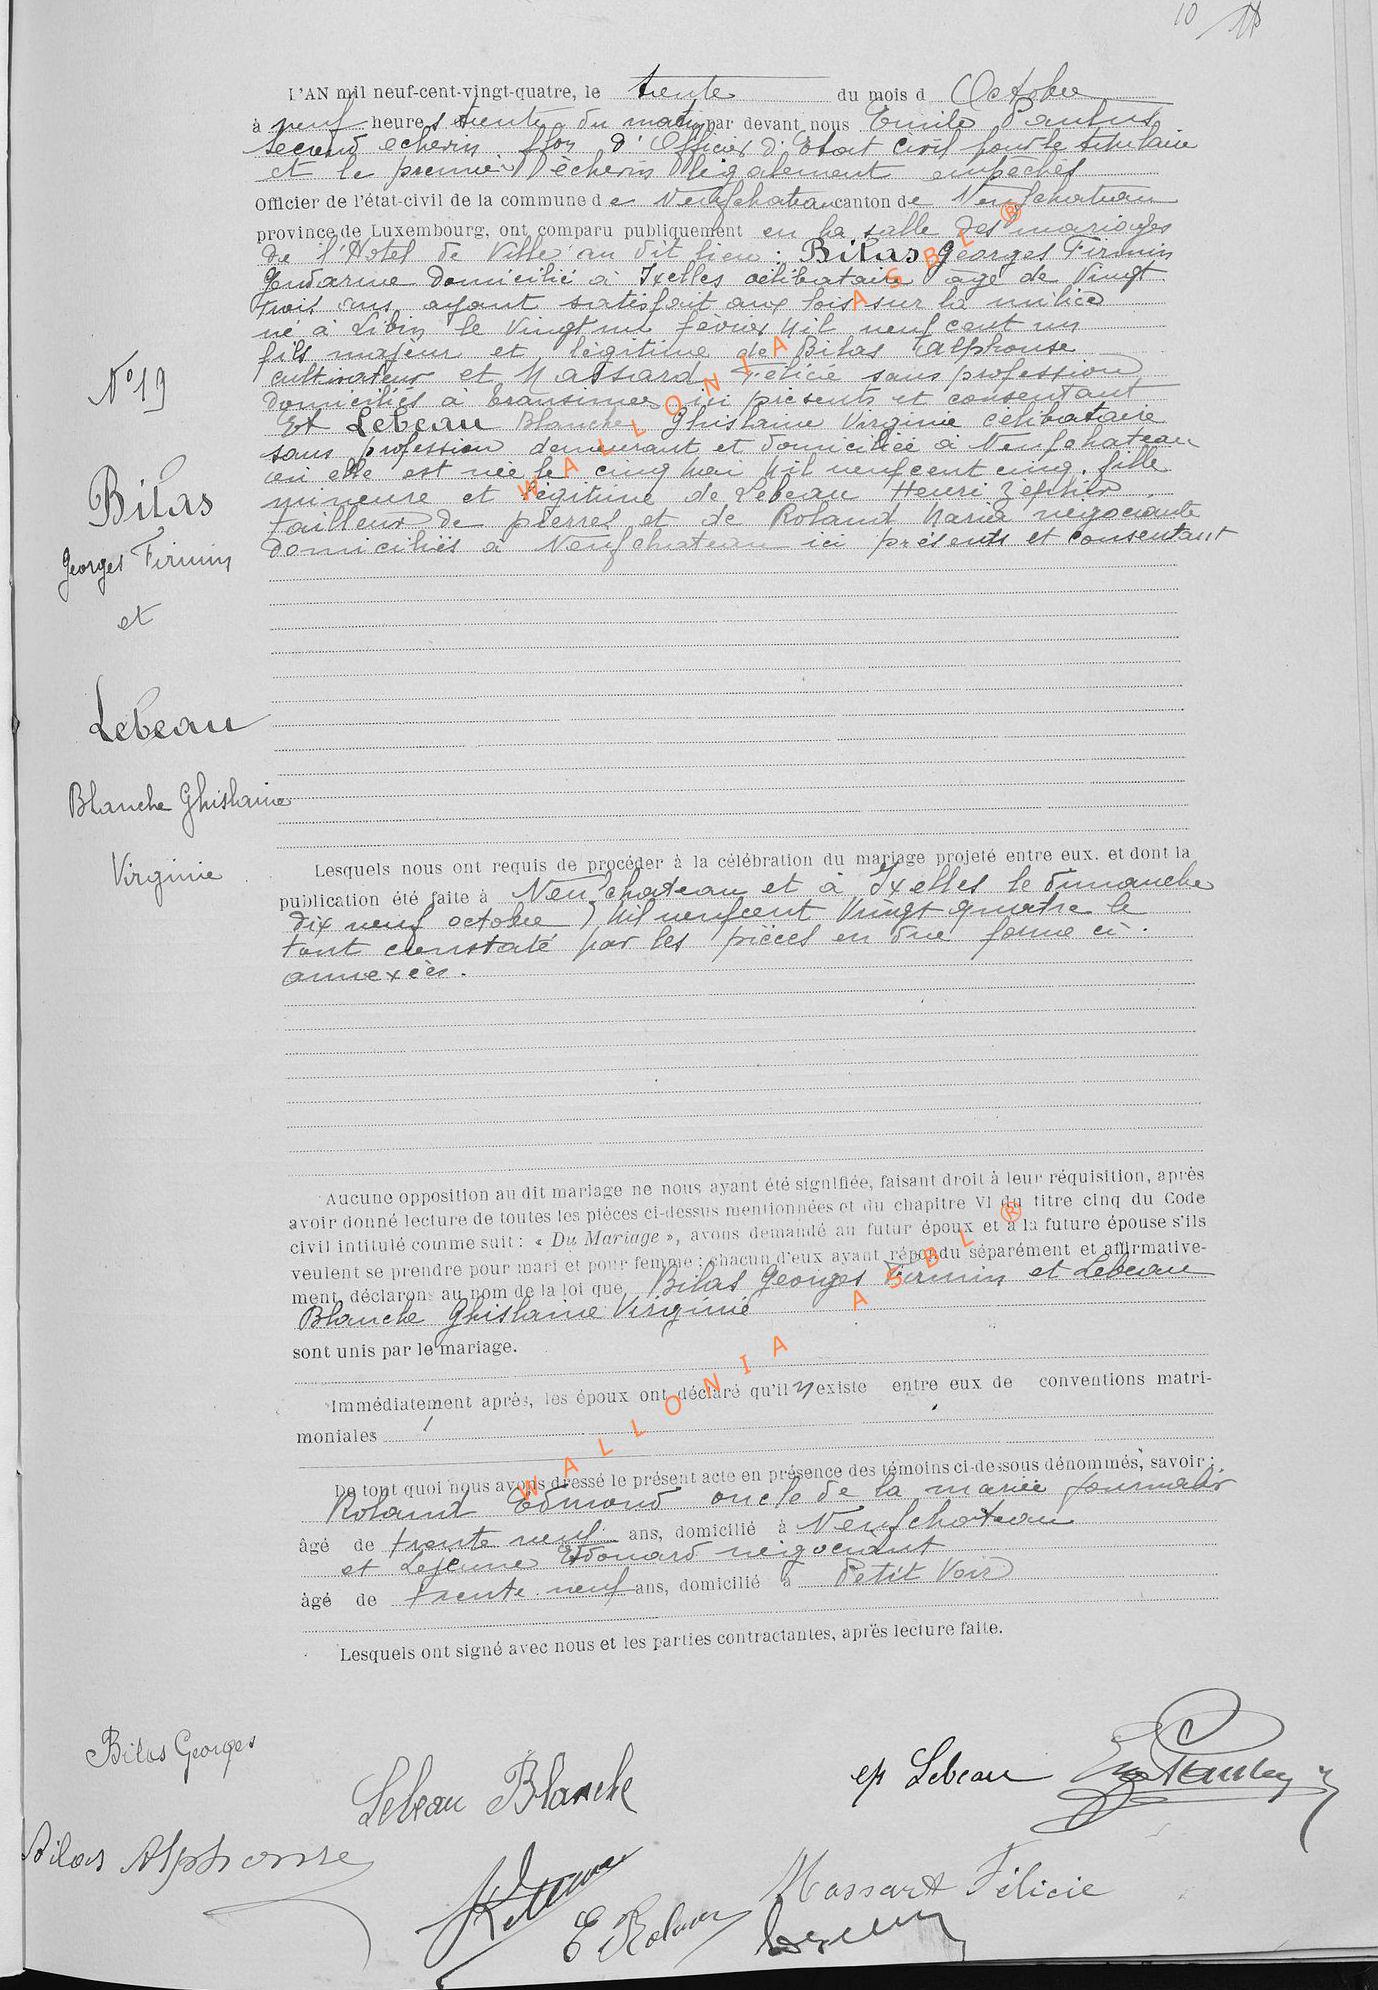 10
L'AN mil neuf-cent-vingt-quatre, le trente du mois d Octobre
à neuf heures trente du matin par devant nous Emile Pautus
second echevin ffon d'Officier d'Etat Civil pour le titulaire
et le premier échevin légalement empêchés
Officier de l'état-civil de la commune de Neufchateau canton de Neufchateau
province de Luxembourg, ont comparu publiquement en la salle des mariages
de l'Hotel de Ville au dit lieu : Bilas Georges Firmin
Gendarme domicilié à Ixelles célibataire agé de Vingt
trois ans ayant satisfait aux lois sur la milice
né à Libin le Vingt un février Mil neuf cent un
fils majeur et légitime de Bilas Alphonse
cultivateur et Massard Félicie sans profession
domiciliés à Transinne ici présents et consentant
Et Lebeau Blanche Ghislaine Virginie célibataire
sans profession demeurant et domiciliée à Neufchateau
où elle est née le cinq Mai Mil neufcent cinq. fille
mineure et légitime de Lebeau Henri Zéphir
tailleur de pierres et de Roland Maria négociante
domiciliés à Neufchateau ici présents et consentant
N° 19
Bilas
Georges Firmin
et
Lebeau
Blanche Ghislaine
Virginie
Lesquels nous ont requis de procéder à la célébration du mariage projeté entre eux. et dont la
publication été faite à Neufchateau et à Ixelles le dimanche
dix neuf octobre Mil neufcent Vingt quatre le
tout constaté par les pièces en due forme ci-
annexées.
Aucune opposition au dit mariage ne nous ayant été signifiée, faisant droit à leur réquisition, après
avoir donné lecture de toutes les pièces ci-dessus mentionnées et du chapitre VI du titre cinq du Code
civil intitulé comme suit : « Du Mariage », avons demandé au futur époux et à la future épouse s'ils
veulent se prendre pour mari et pour femme ; chacun d'eux ayant répondu séparément et affirmative-
ment, déclarons au nom de la loi que Bilas Georges Firmin et Lebeau
Blanche Ghislaine Virginie
sont unis par le mariage.
Immédiatement après, les époux ont déclaré qu'il n'existe entre eux de conventions matri-
moniales
De tout quoi nous avons dressé le présent acte en présence des témoins ci-dessous dénommés, savoir :
Roland Edmond oncle de la mariée journalier
âgé de trente neuf ans, domicilié à Neufchateau
et Lejeune Edouard négociant
âgé de trente neuf ans, domicilié à Petit Voir
Lesquels ont signé avec nous et les parties contractantes, après lecture faite.
Bilas Georges
Lebeau Blanche
ep Lebeau
Bilas Alphonse
E Roland
Massart Félicie
WALLONIA ASBL ®
WALLONIA ASBL ®